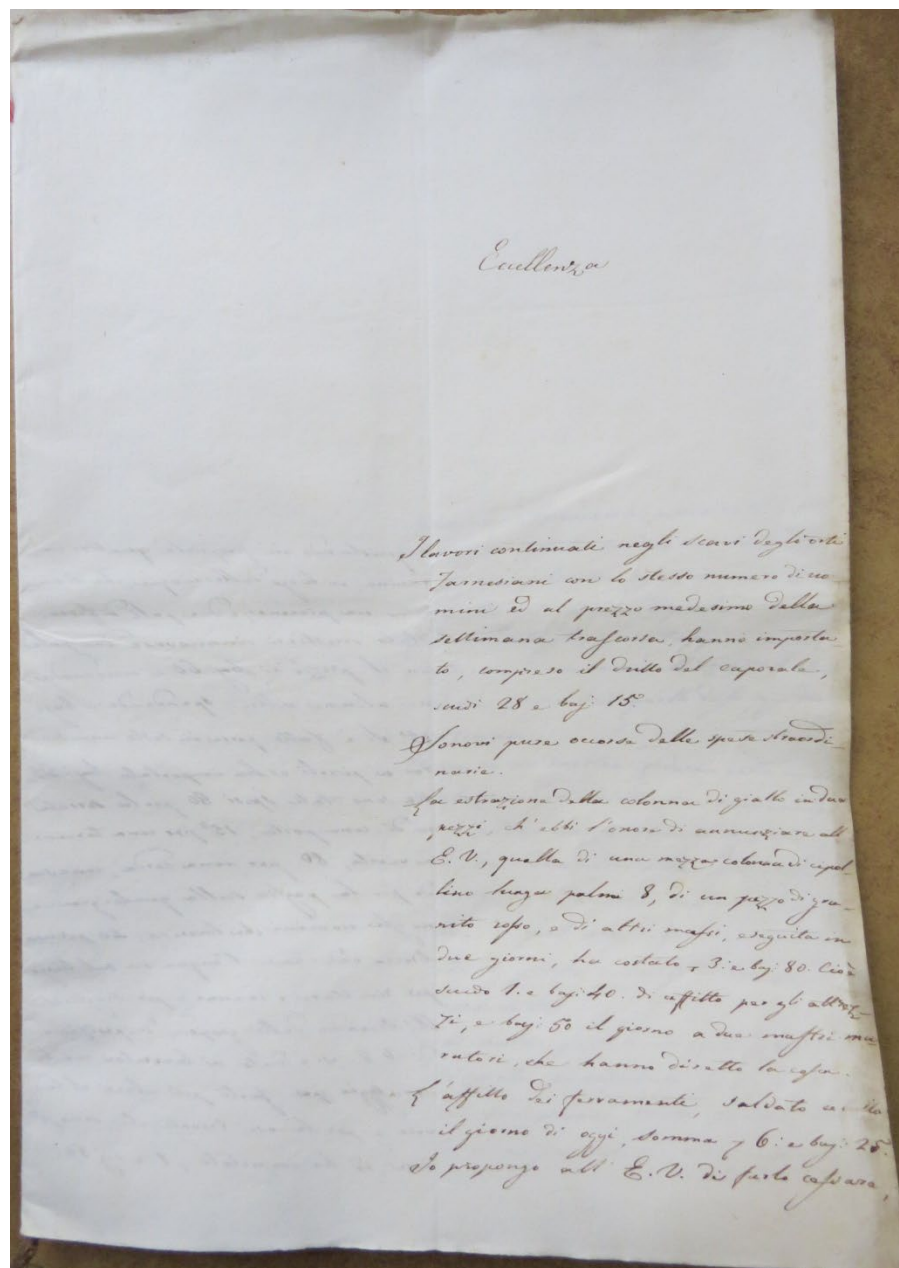 Eccellenza
I lavori continuati negli scavi degli orti
Farnesiani con lo stesso numero di uo
mini ed al prezzo medesimo della
settimana trascorsa, hanno importa
to, compreso il dritto del caporale,
scudi 28 e baj: 15.
Sonovi pure occorse delle spese straordi
narie.
La estrazione della colonna di giallo in due
pezzi, ch'ebbi l'onore di annunziare all'
E. V., quella di una mezza colonna di cipol
lino lunga palmi 8, di un pezzo di gra
nito rosso, e di altri massi, eseguita in
due giorni, ha costato 3: e baj: 80. Cioè
scudo 1. e baj: 40. di affitto per gli attrez
zi, e baj: 50 il giorno a due mastri mu
ratori, che hanno diretto la cosa.
L'affitto dei ferramenti, saldato a tutto
il giorno di oggi, somma 6: e baj: 25.
Io propongo all' E. V. di farlo cessare,